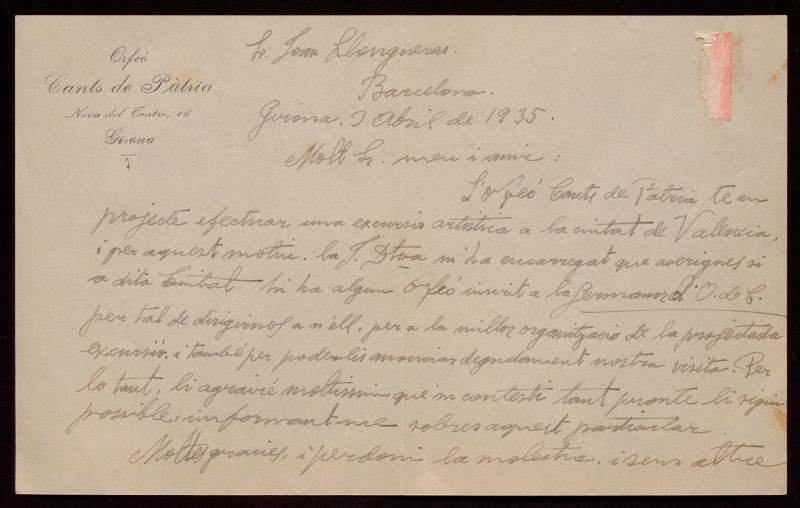 Orfeó
Cants de Pàtria
Nova del Teatre, 16
Girona
Sr. Joan Llongueras.
Barcelona.
Girona. 3 Abril de 1935.
Molt Sr. meu i amic:
L'Orfeó Cants de Pàtria te en
projecte efectuar una excursio artistica a la ciutat de Valencia,
i per aquest motiu, la J. Dtva m'ha encarregat que averigues si
a dita Ciutat hi ha algun Orfeó inscrit a la Germanor d'O. de C.
per tal de dirigirnos a n'ell, per a la millor organitzacio de la projectada
excursió, i també per poder-lis anunciar degudament nostra visita. Per
lo tant, li agrairé moltissim que m contesti tant pronte li sigui
possible, informant-me sobres aquest particular.
Moltes gracies, i perdoni la molestia, i sens altre